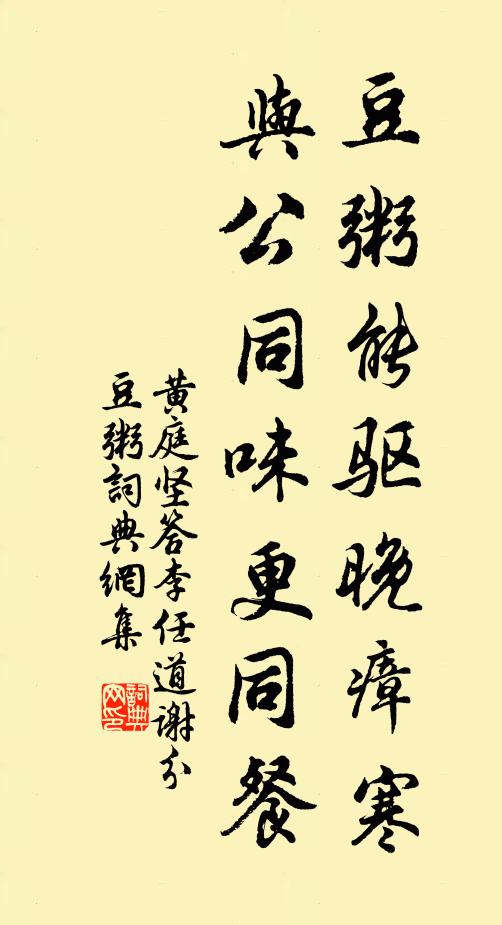 豆粥能驱晚瘴寒
與公同味更同餐
黄庭坚答李任道謝分
豆粥詞典網集
詞典网印